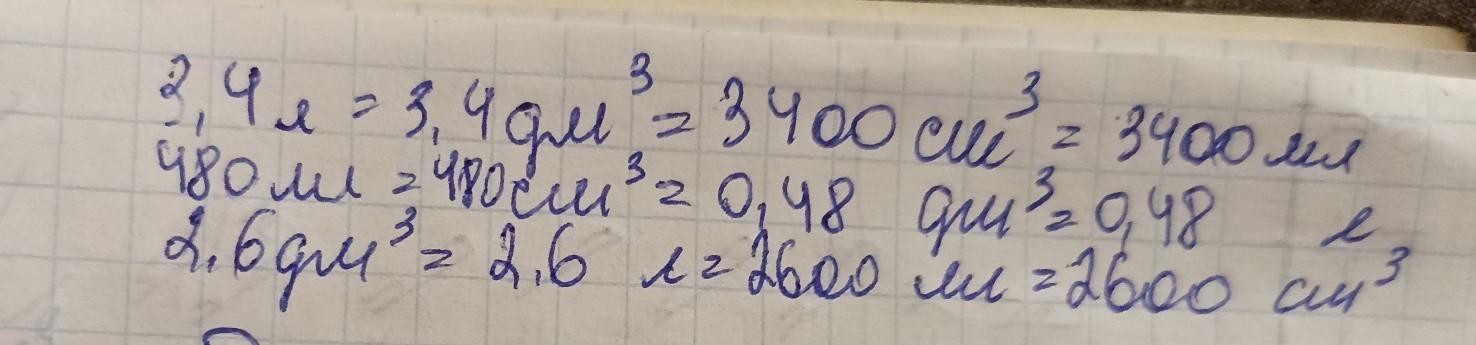 3,4 л = 3,4 дм³ = 3400 см³ = 3400 мл
480 мл = 480 см³ = 0,48 дм³ = 0,48 л
2,6 дм³ = 2,6 л = 2600 мл = 2600 см³